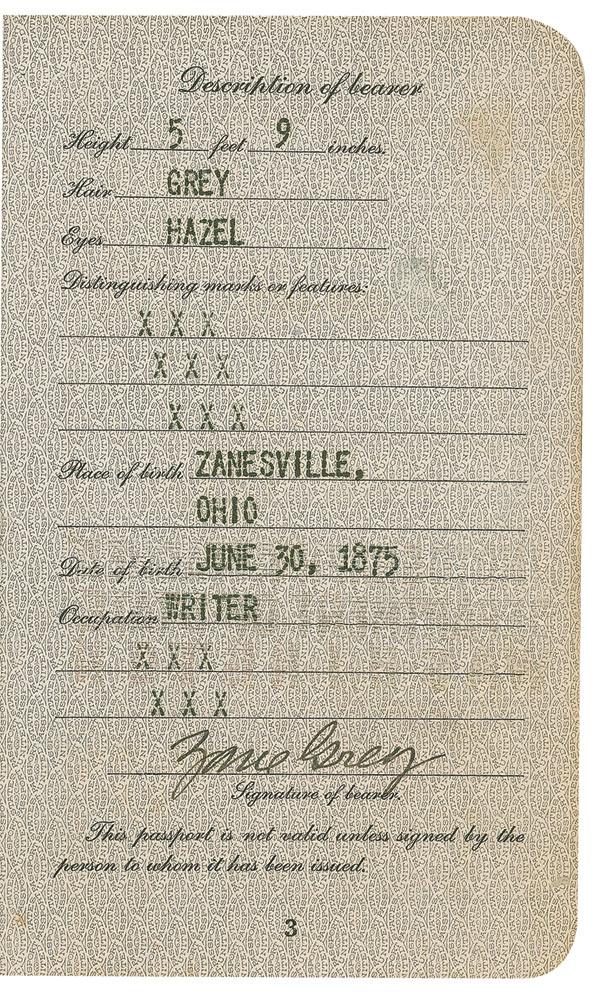 Description of bearer
Height 5 feet 9 inches.
Hair GREY
Eyes HAZEL
Distinguishing marks or features:
X X X
X X X
X X X
Place of birth ZANESVILLE,
OHIO
Date of birth JUNE 30, 1875
Occupation WRITER
X X X
X X X
Zane Grey
Signature of bearer.
This passport is not valid unless signed by the
person to whom it has been issued.
3